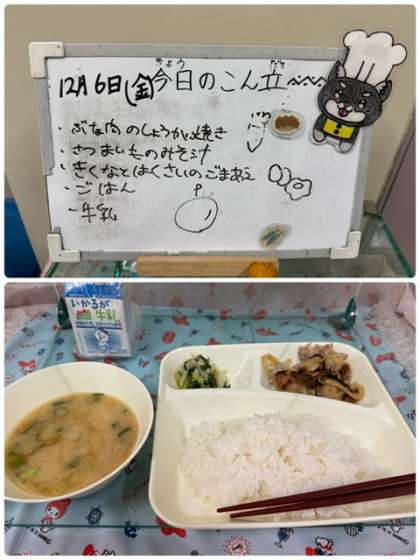 12月6日(金)今日のこん立
きょう
だて
・ぶた肉のしょうが焼き
・さつまいものみそ汁
・きくなとはくさいのごまあえ
・ごはん
・牛乳
いかるが
牛乳